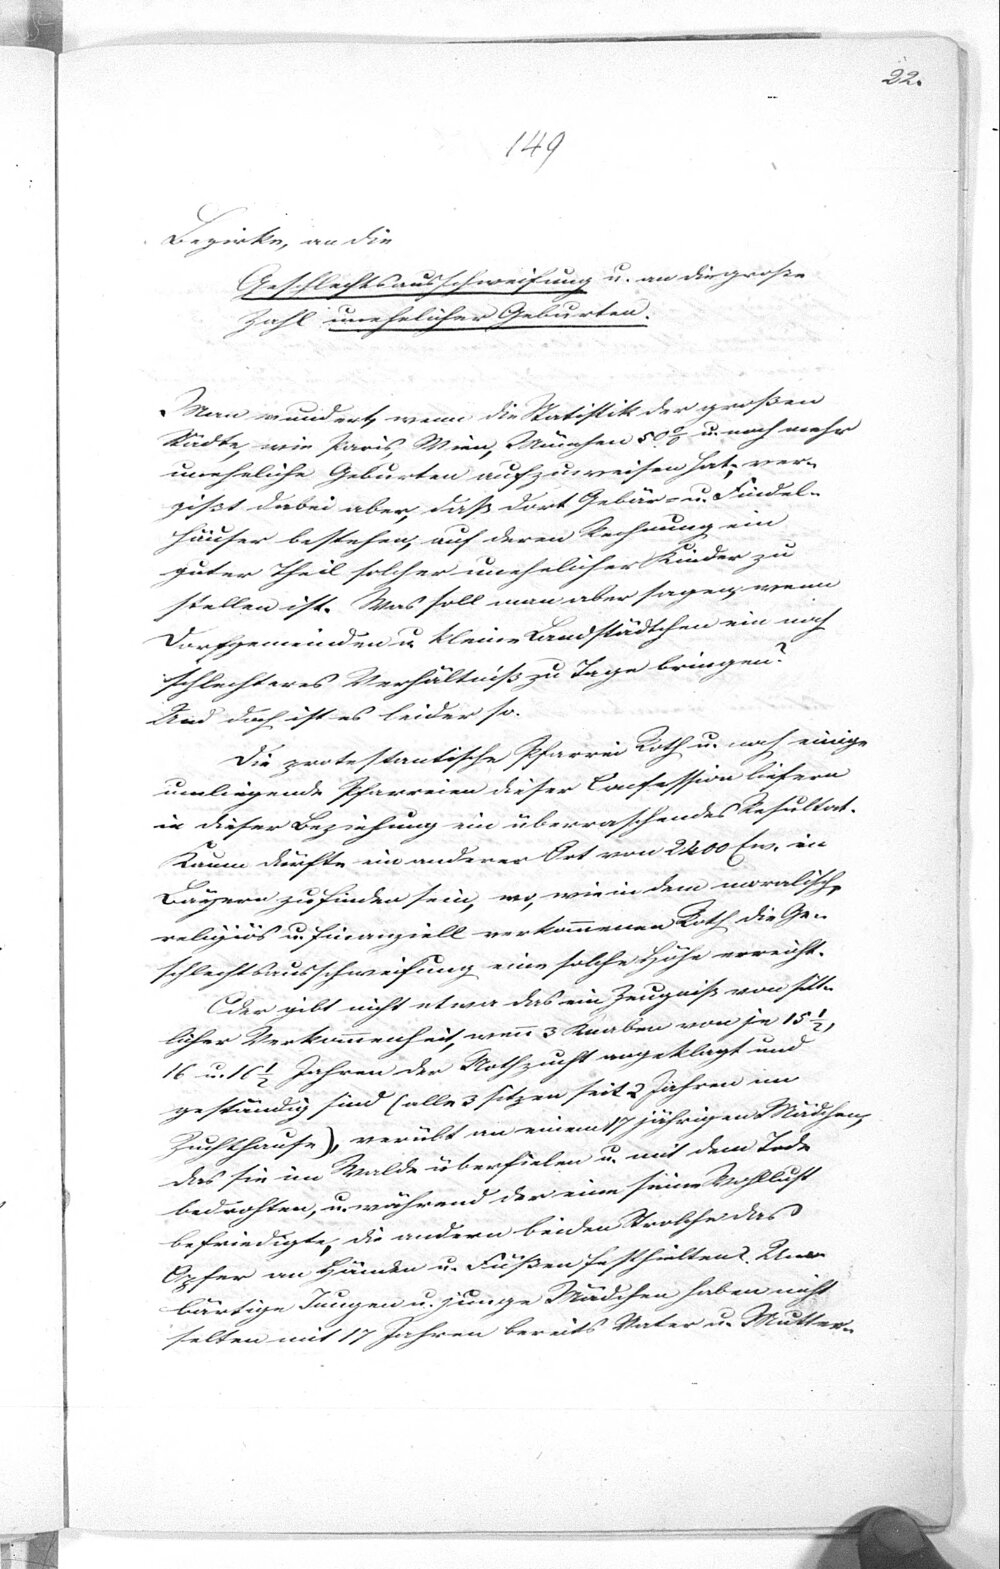 22.
149
Bezirke, an die
Geschlechtsausschweifung u. an die große
Zahl unehelicher Geburten.
Man wundert, wenn die Statistik der großen
Städte, wie Paris, Wien, München 50% u. noch mehr
uneheliche Geburten aufzuweisen hat, ver-
gißt dabei aber, daß dort Gebär- u. Findel-
häuser bestehen, auf deren Rechnung ein
guter Theil solcher unehelicher Kinder zu
stellen ist. Was soll man aber sagen, wenn
Dorfgemeinden u. kleine Landstädtchen ein noch
schlechteres Verhältniß zu Tage bringen?
Und doch ist es leider so.
Die protestantische Pfarrei Roth u. noch einige
umliegende Pfarreien dieser Confession liefern
in dieser Beziehung ein überraschendes Resultat.
Kaum dürfte ein anderer Ort von 2400 Ew. in
Bayern zu finden sein, wo, wie in dem moralisch,
religiös u. finanziell verkommenen Roth, die Ge-
schlechtsausschweifung eine solche Höhe erreicht.
Oder gibt nicht etwa das ein Zeugniß von sitt-
licher Verkommenheit, wenn 3 Knaben von je 15 1/2,
16 u. 16 1/2 Jahren der Nothzucht angeklagt und
geständig sind (alle 3 sitzen seit 2 Jahren im
Zuchthause), verübt an einem 17 jährigen Mädchen,
das sie im Walde überfielen u. mit dem Tode
bedrohten, u. während der eine seine Wohllust
befriedigte, die andern beiden Strolche das
Opfer an Händen u. Füßen festhielten? Un-
bärtige Jungen u. junge Mädchen haben nicht
selten mit 17 Jahren bereits Vater u. Mutter-